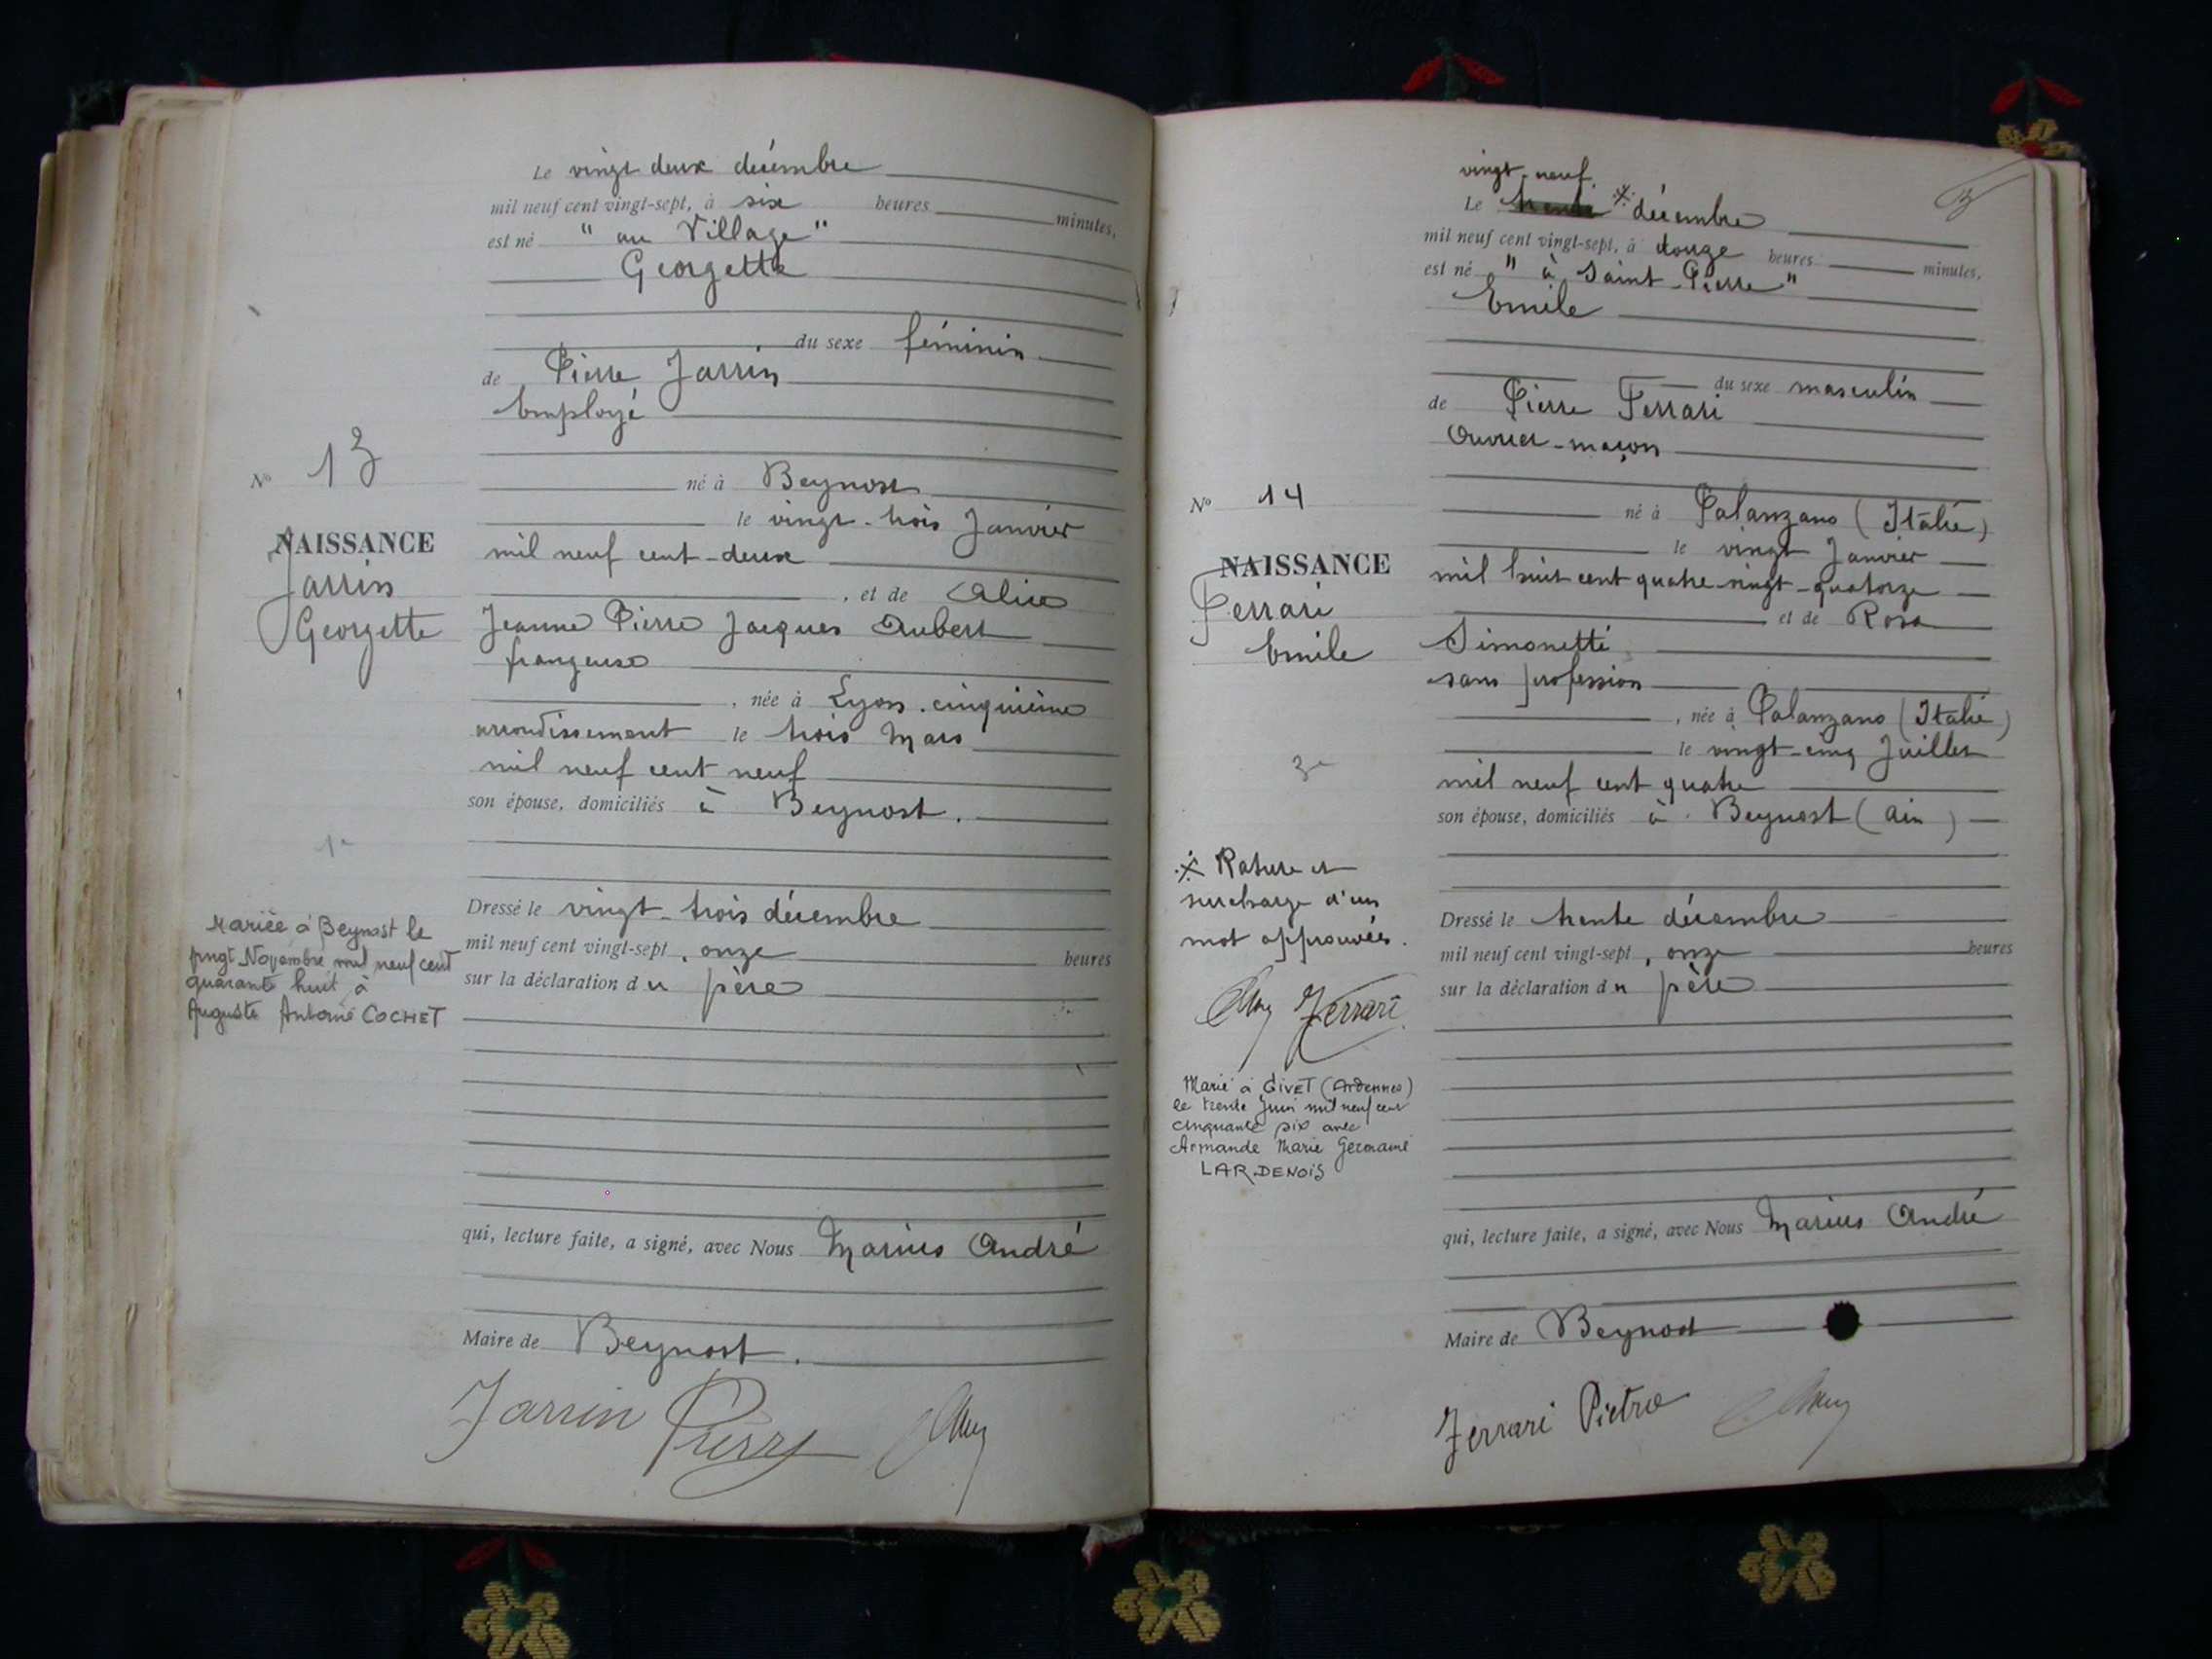 Le vingt deux décembre
mil neuf cent vingt-sept, à six heures minutes,
est né " au Village "
Georgette
du sexe féminin
de Pierre Jarrin
Employé
né à Beynost
le vingt-trois Janvier
mil neuf cent-deux
, et de Alice
Jeanne Pierre Jacques Aubert
frangeuse
, née à Lyon. cinquième
arrondissement le trois Mars
mil neuf cent neuf
son épouse, domiciliés à Beynost.
Dressé le vingt-trois décembre
mil neuf cent vingt-sept, onze heures
sur la déclaration du père
qui, lecture faite, a signé, avec Nous Marius André
Maire de Beynost.
Jarrin Pierre
No 13
NAISSANCE
Jarrin
Georgette
Mariée à Beynost le
vingt Novembre mil neuf cent
quarante huit à
Auguste Antoine COCHET
vingt-neuf
Le décembre
mil neuf cent vingt-sept, à douze heures minutes,
est né " à Saint-Pierre "
Emile
du sexe masculin
de Pierre Ferrari
Ouvrier-maçon
né à Palanzano (Italie)
le vingt Janvier
mil huit cent quatre-vingt-quatorze
et de Rosa
Simonetti
sans profession
, née à Palanzano (Italie)
le vingt-cinq Juillet
mil neuf cent quatre
son épouse, domiciliés à Beynost (Ain)
Dressé le trente décembre
mil neuf cent vingt-sept, onze heures
sur la déclaration du père
qui, lecture faite, a signé, avec Nous Marius André
Maire de Beynost
Ferrari Pietro
No 14
NAISSANCE
Ferrari
Emile
Rature et
surcharge d'un
mot approuvées.
Ferrari
Marié à GIVET (Ardennes)
le trente Juin mil neuf cent
cinquante six avec
Armande Marie Germaine
LARDENOIS